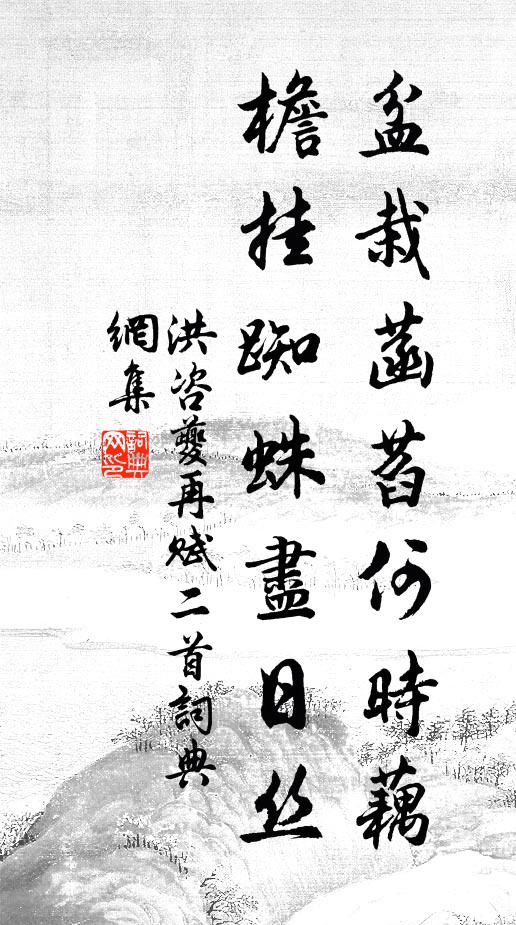 盆栽菡萏何時藕
檐挂踟蛛盡日丝
洪咨夔再赋二首詞典
網集
詞典网印